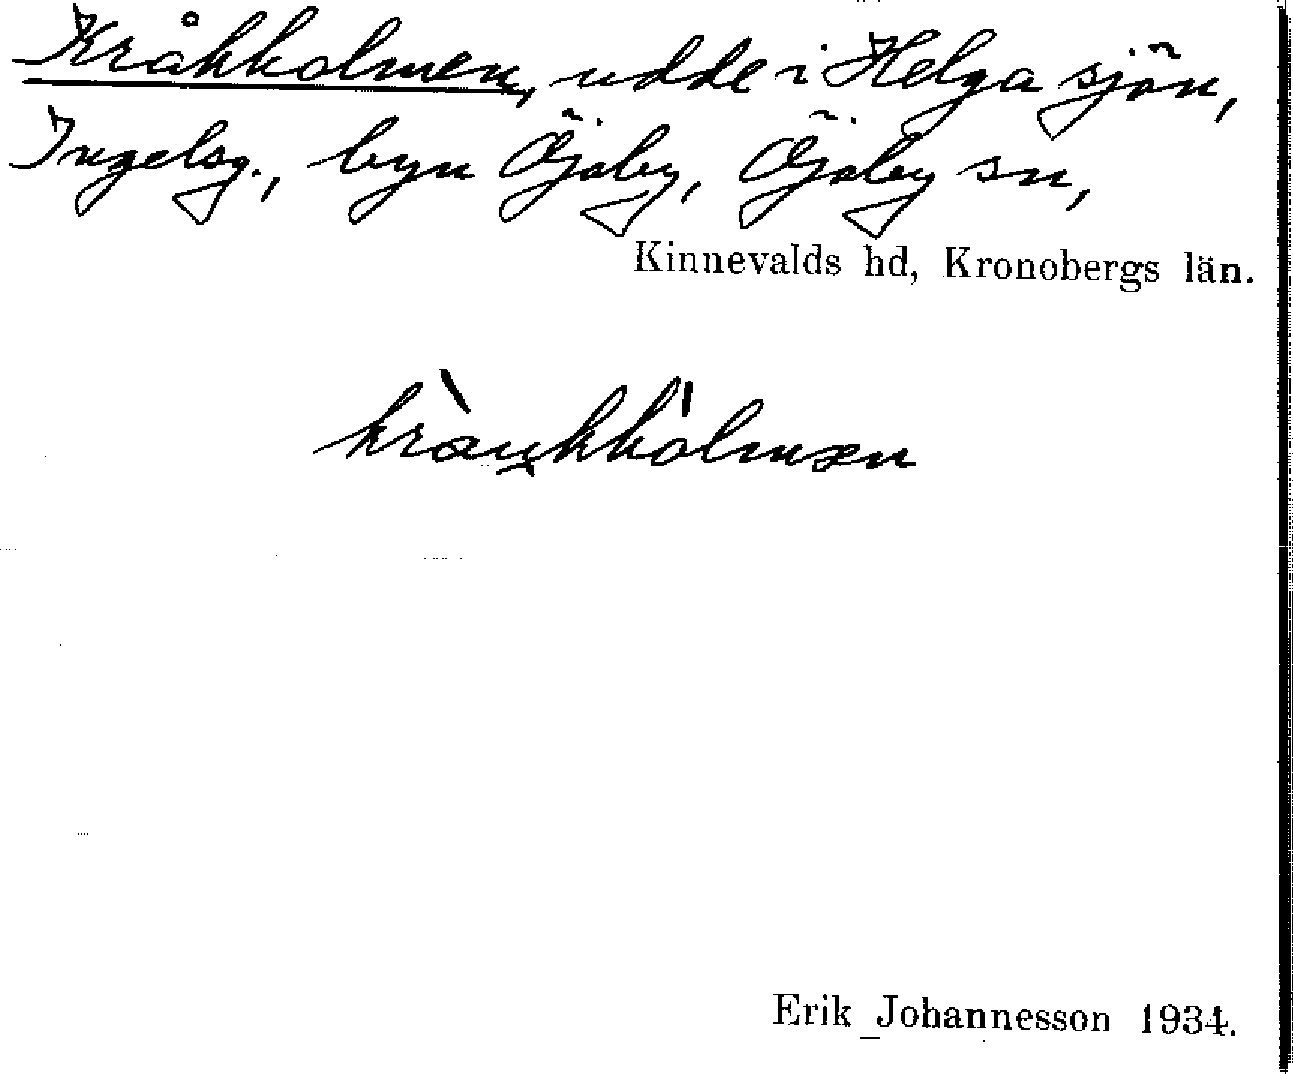 Kråkholmen, udde i Helga sjön,
Ingelsg., byn Öjaby, Öjaby sn,
Kinnevalds hd, Kronobergs län.
Erik Johannesson 1934.